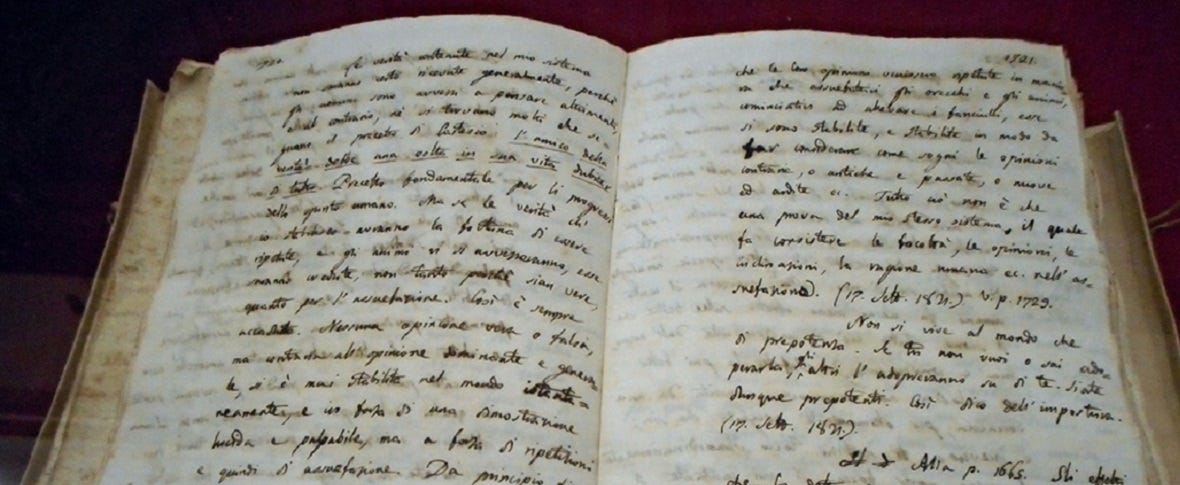 1720
Le verità contenute nel mio sistema
non saranno certo ricevute generalmente, perchè
gli uomini sono avvezzi a pensare altrimenti,
e al contrario, nè si trovano molti che se-
guano il precetto di Cartesio: l'amico della
verità debbe una volta in sua vita dubitar
di tutto. Precetto fondamentale per li progressi
dello spirito umano. Ma se le verità ch'
io stabilisco avranno la fortuna di essere
ripetute, e gli animi vi si avvezzeranno, esse
saranno credute, non tanto perchè sian vere,
quanto per l'assuefazione. Così è sempre
accaduto. Nessuna opinione vera o falsa,
ma contraria all'opinione dominante e genera-
le, si è mai stabilita nel mondo istanta-
neamente, e in forza di una dimostrazione
lucida e palpabile, ma a forza di ripetizioni
e quindi di assuefazione. Da principio
1721
che le loro opinioni venissero ripetute in manie-
ra che assuefattici gli orecchi e gli animi,
cominciativi ad allevare i fanciulli, esse
si sono stabilite, e stabilite in modo da
far considerare come sogni le opinioni
contrarie, o antiche e passate, o nuove
ed ardite ec. Tutto ciò non è che
una prova del mio stesso sistema, il quale
fa consistere le facoltà, le opinioni, le
inclinazioni, la ragione umana ec. nell'as-
suefazione). (17. Sett. 1821.) v. p. 1729.
Non si vive al mondo che
di prepotenza. Se tu non vuoi o sai ado-
perarla, gli altri l'adopreranno su di te. Siate
dunque prepotenti. Così dico dell'impostura.
(17. Sett. 1821.).
Alla p. 1665. Gli effetti
che la